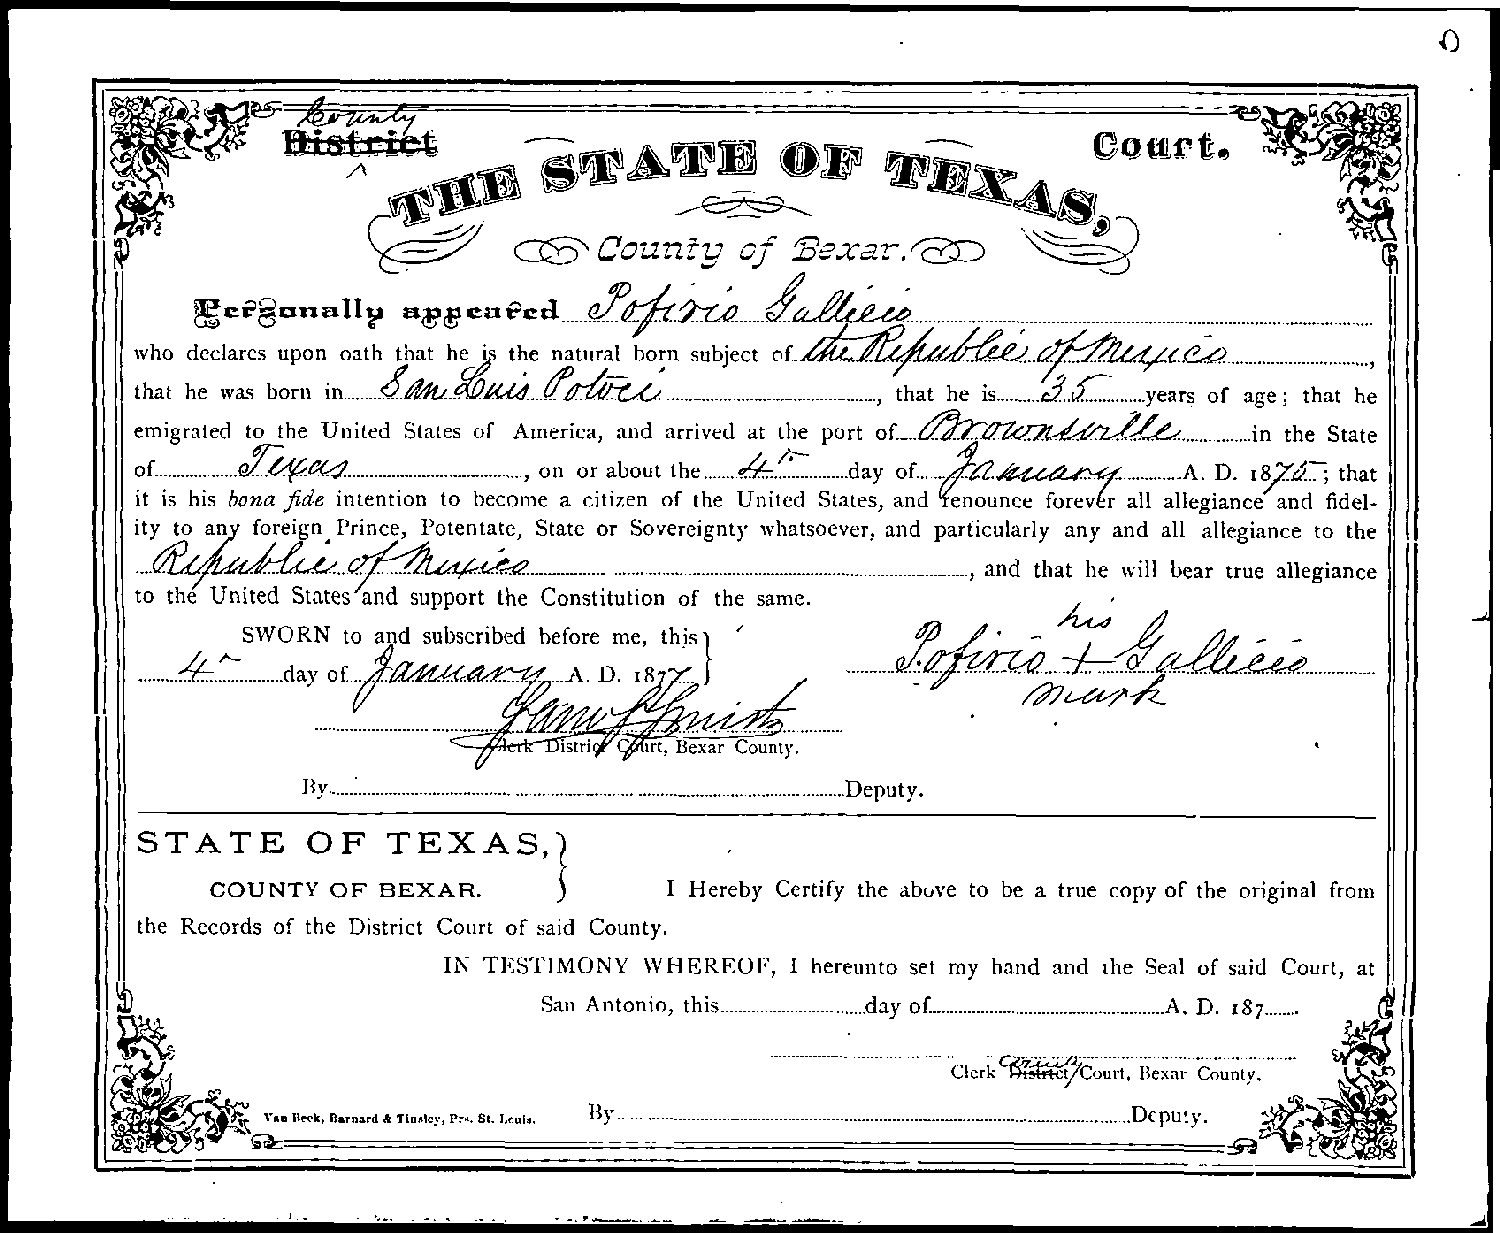 County
District Court.
THE STATE OF TEXAS,
County of Bexar.
Personally appeared Pofirio Gallicio
who declares upon oath that he is the natural born subject of the Republic of Mexico,
that he was born in San Luis Potoci, that he is 35 years of age; that he
emigrated to the United States of America, and arrived at the port of Brownsville in the State
of Texas, on or about the 4th day of January A. D. 1875; that
it is his bona fide intention to become a citizen of the United States, and renounce forever all allegiance and fidel-
ity to any foreign Prince, Potentate, State or Sovereignty whatsoever, and particularly any and all allegiance to the
Republic of Mexico, and that he will bear true allegiance
to the United States and support the Constitution of the same.
SWORN to and subscribed before me, this
4th day of January A. D. 1877
his
Pofirio + Gallicio
mark
Clerk District Court, Bexar County.
By Deputy.
STATE OF TEXAS,
COUNTY OF BEXAR.
I Hereby Certify the above to be a true copy of the original from
the Records of the District Court of said County.
IN TESTIMONY WHEREOF, I hereunto set my hand and the Seal of said Court, at
San Antonio, this day of A. D. 187
County
Clerk District Court, Bexar County.
Van Beck, Barnard & Tinsley, Prs. St. Louis.
By Deputy.